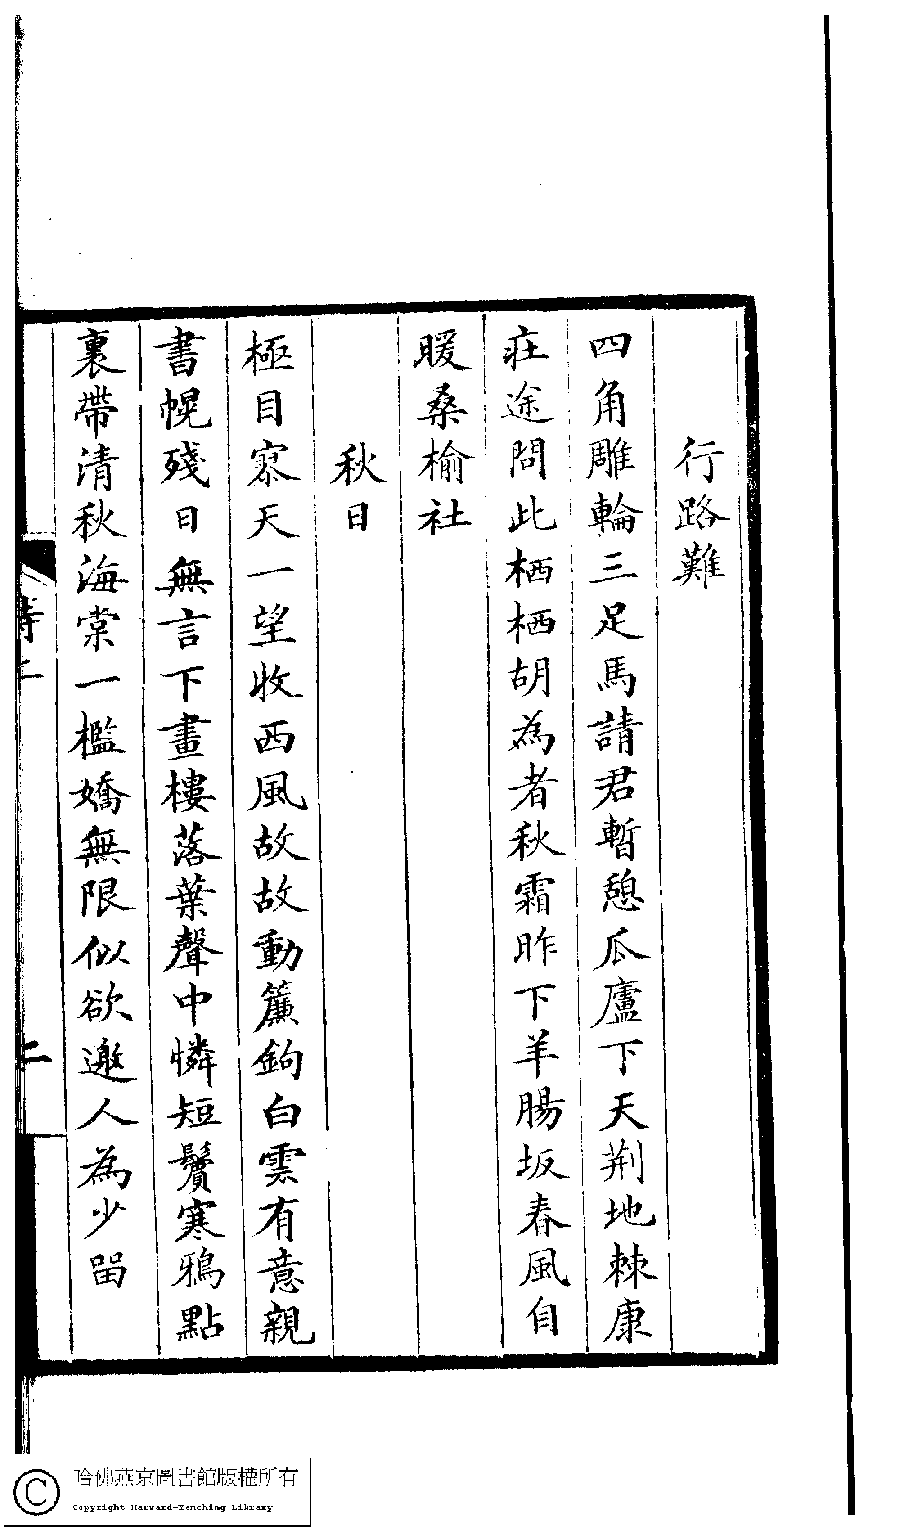 行路難
四角雕輪三足馬請君暫憩瓜廬下天荆地棘康
莊途問此栖栖胡為者秋霜昨下羊腸坂春風自
暖桑榆社
秋日
極目寥天一望收西風故故動簾鉤白雲有意親
書幌殘日無言下畫樓落葉聲中憐短鬢寒鴉點
裏帶清秋海棠一檻嬌無限似欲邀人為少留
詩二
二
哈佛燕京圖書館版權所有
Copyright Harvard-Yenching Library